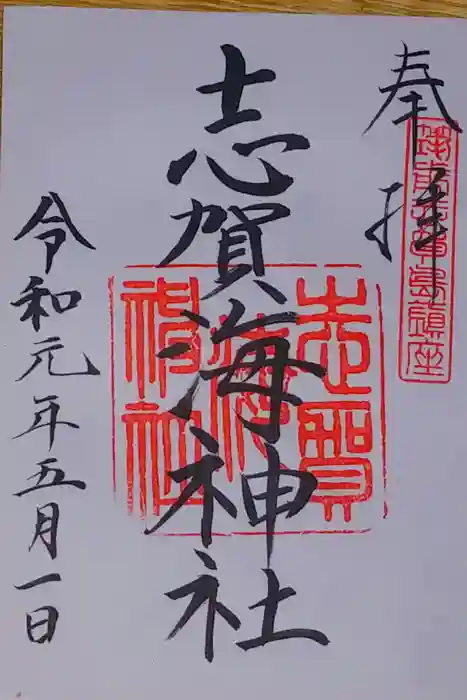 奉拝
筑前志賀島鎮座
志賀海神社
志賀
海
神社
令和元年五月一日